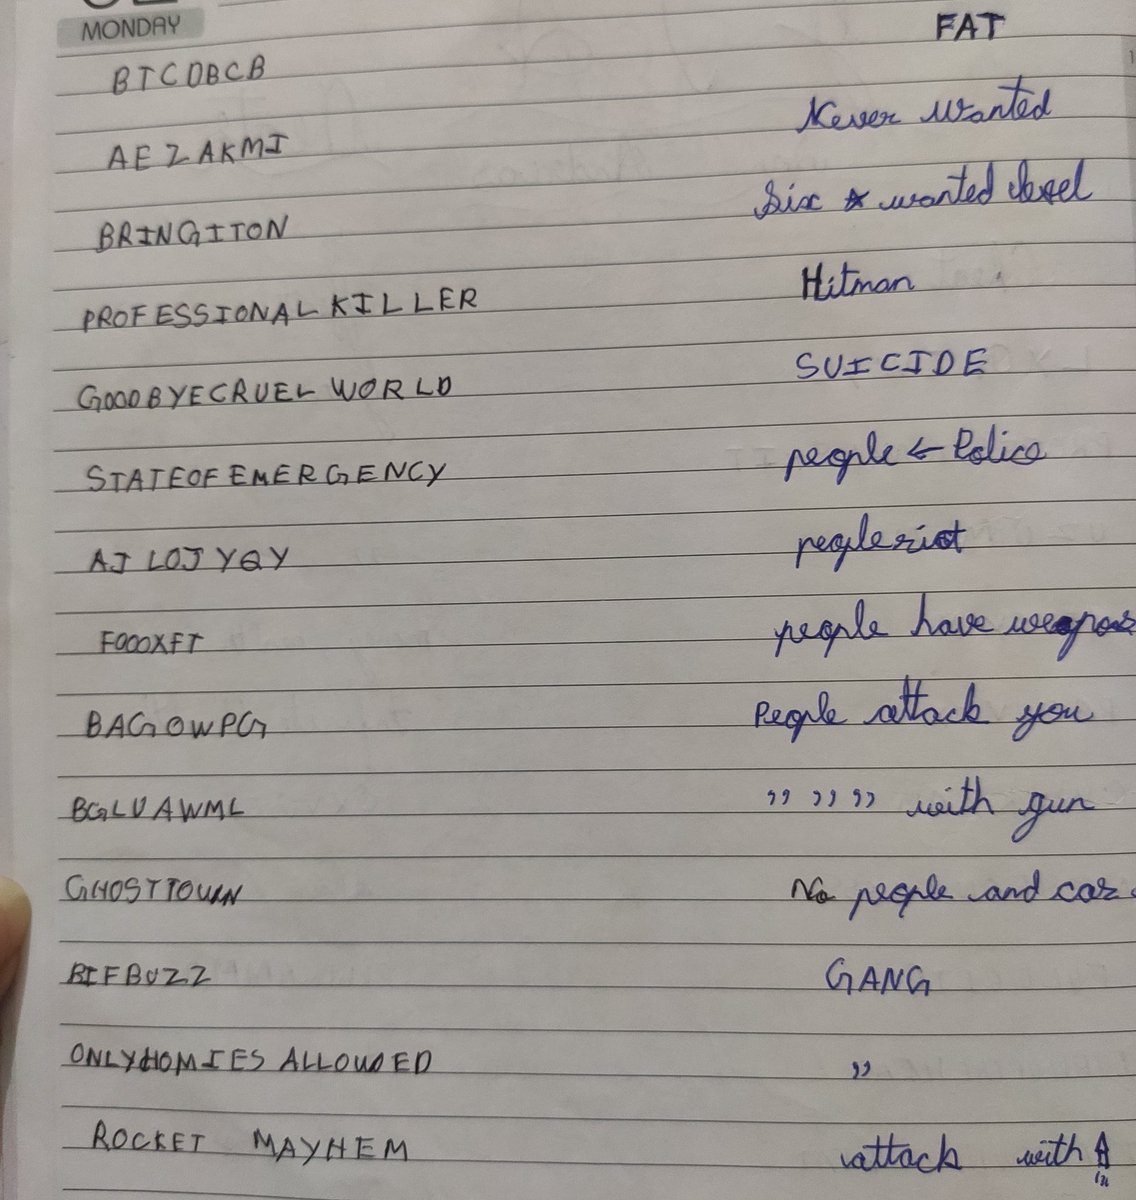 MONDAY
BTCDBCB FAT
AEZAKMI Never Wanted
BRINGITON Six ★ wanted level
PROFESSIONAL KILLER Hitman
GOODBYECRUEL WORLD SUICIDE
STATEOFEMERGENCY people ← Police
AJLOJYQY people riot
FOOOXFT people have weapons
BAGOWPG People attack you
BGLUAWML ,, ,, ,, with gun
GHOSTTOWN No people and car.
BIFBUZZ GANG
ONLYHOMIES ALLOWED ,,
ROCKET MAYHEM attack with